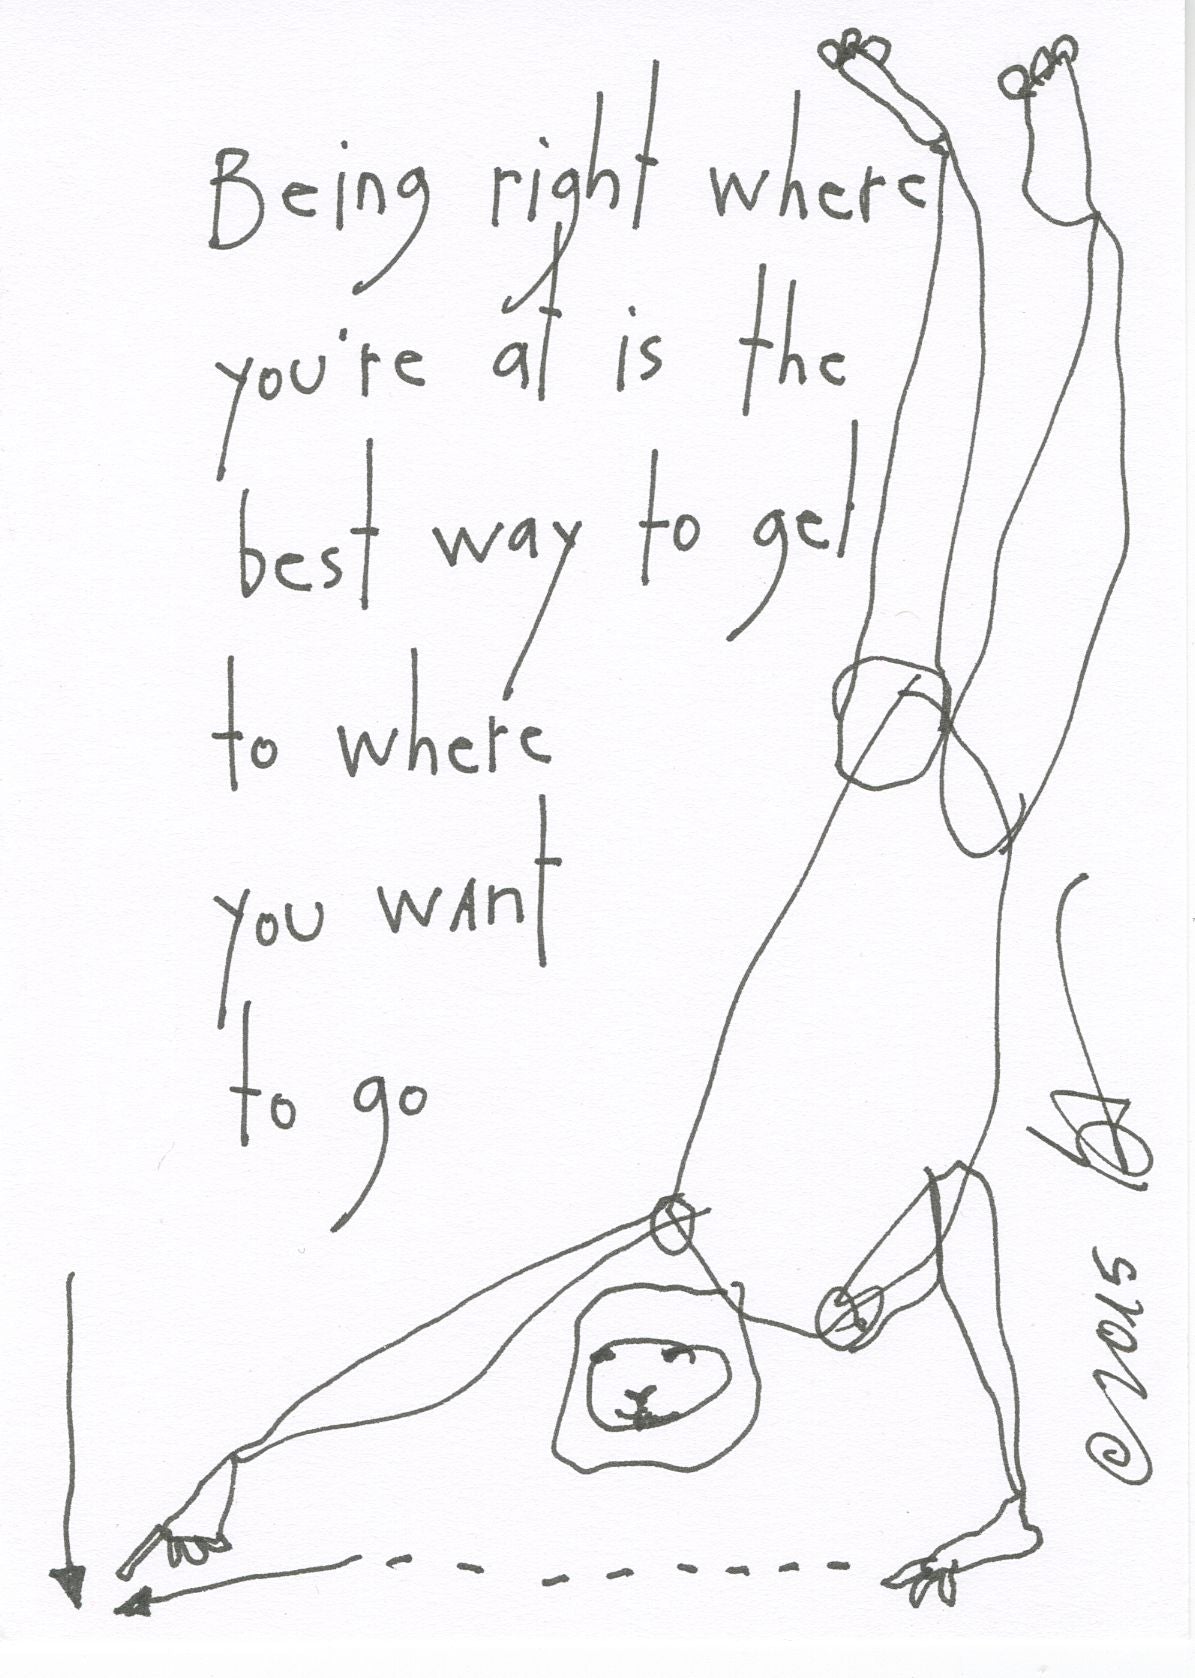 Being right where
you're at is the
best way to get
to where
you want
to go
© 2015